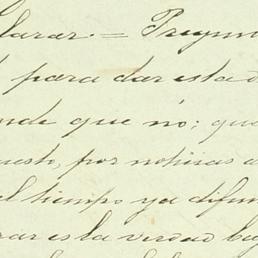 larar = Pregun
para dar esta d
nde que nó; que
uesto, por noticias a
el tiempo ya difun
rar es la verdad baj